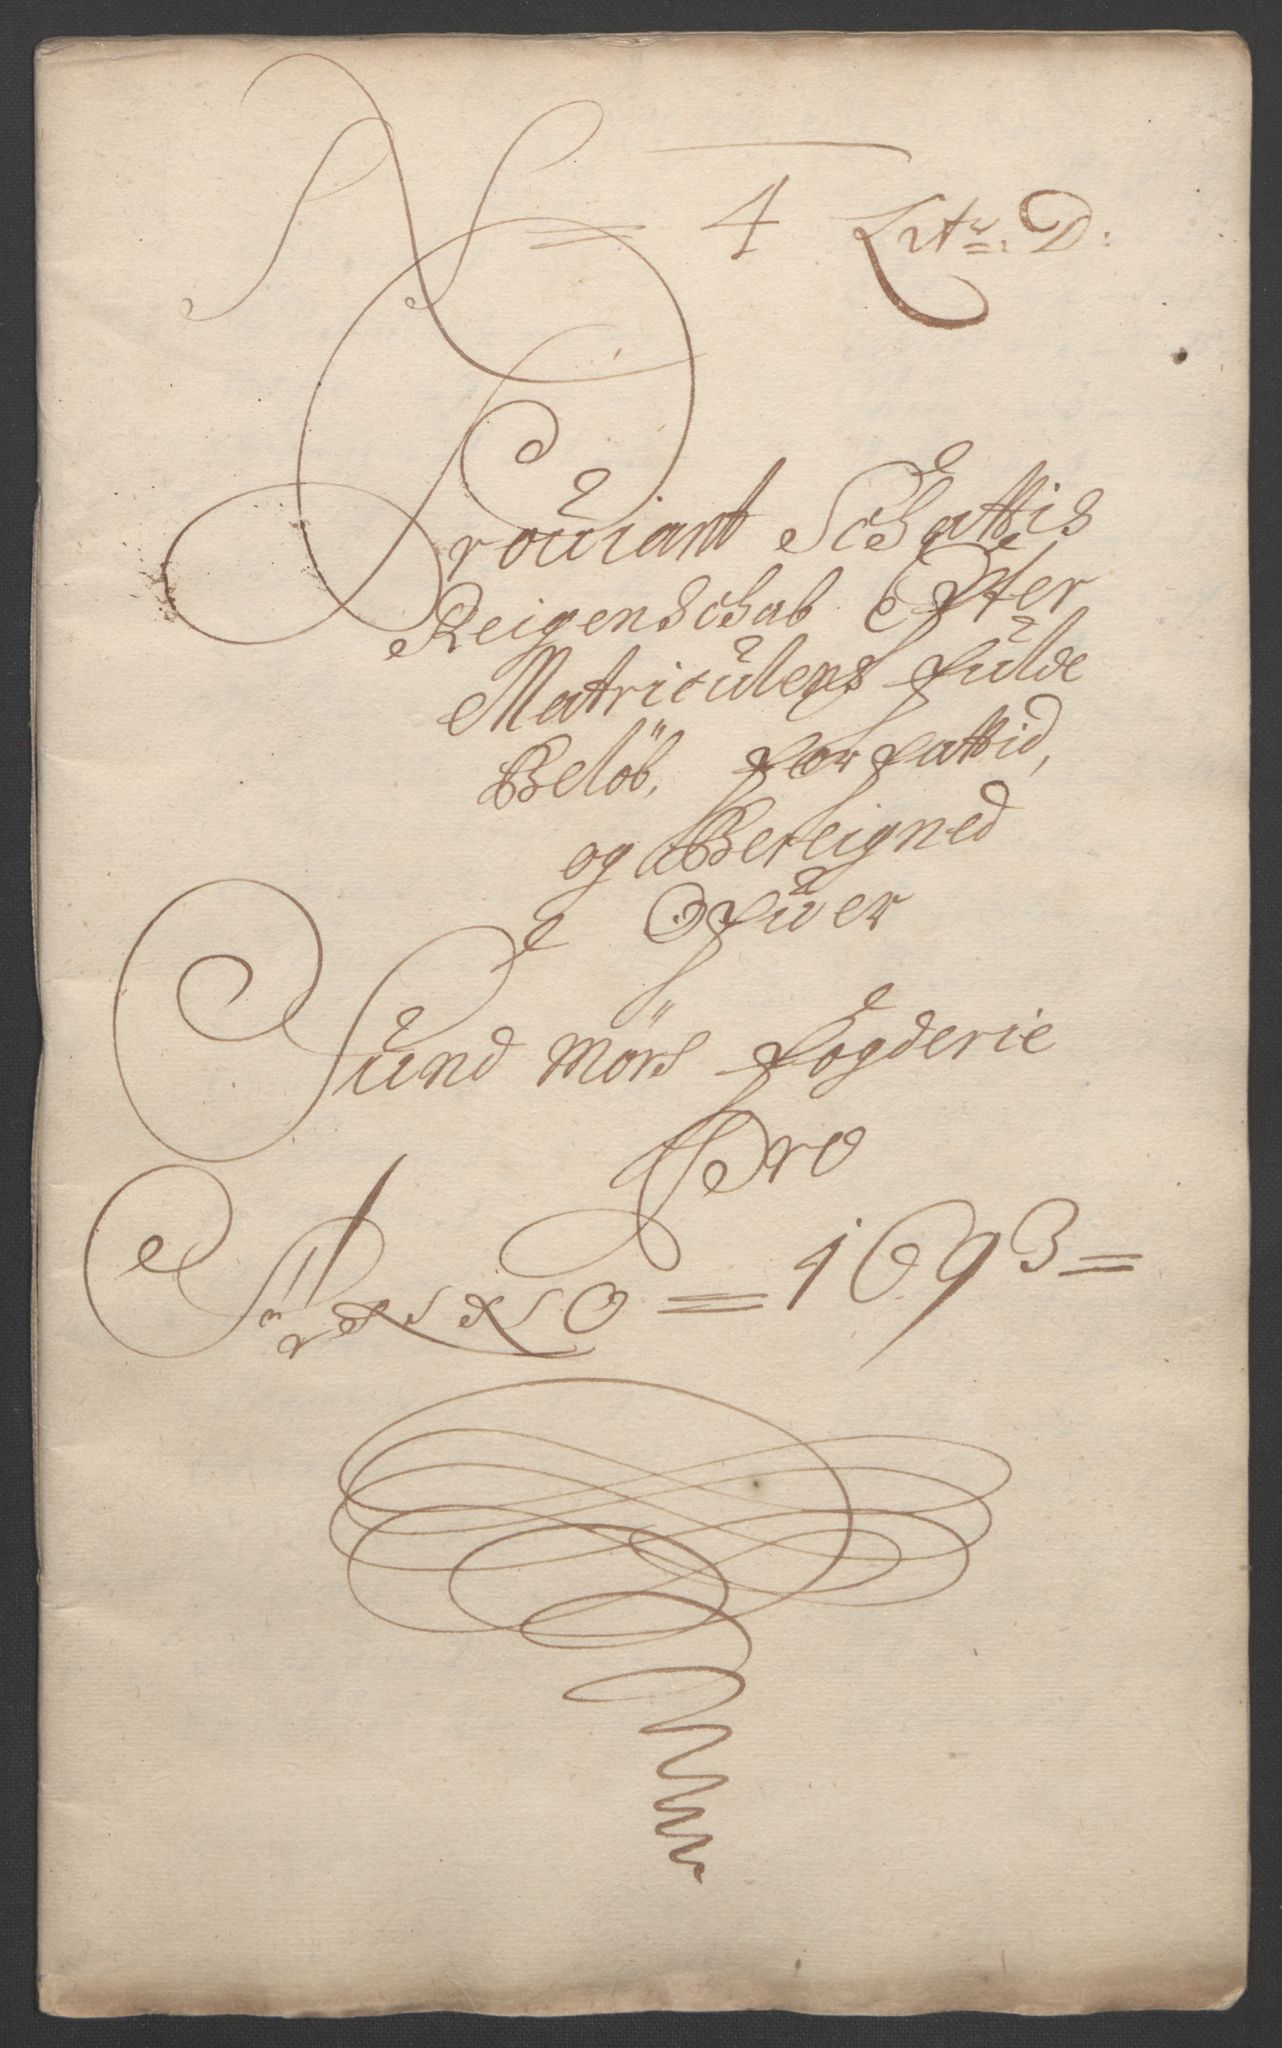 N = 4 Litr: D:
Prouiant Schattis
Reigenschab Efter
Matriculens fulde
Beløb, forfattid,
og Bereigned
Ofuer
Sund Mörs fogderie
Pro
Anno = 1693 =